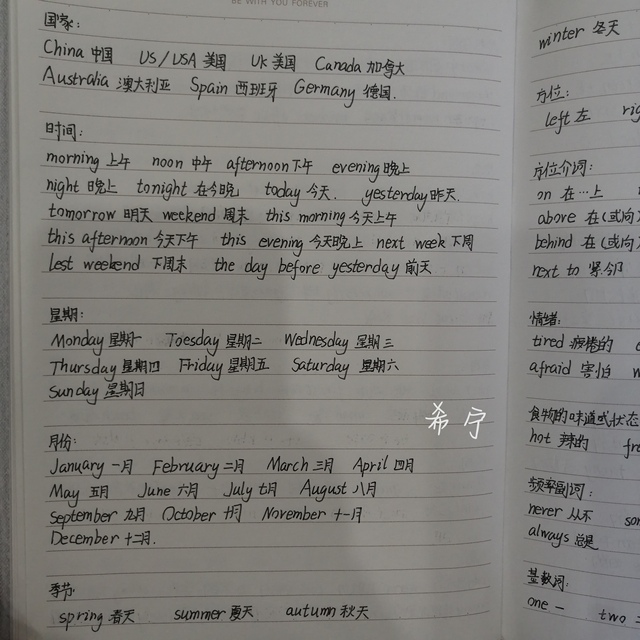 BE WITH YOU FOREVER
国家:
China 中国 US/USA 美国 UK 美国 Canada 加拿大
Australia 澳大利亚 Spain 西班牙 Germany 德国.
时间:
morning 上午 noon 中午 afternoon 下午 evening 晚上
night 晚上 tonight 在今晚 today 今天. yesterday 昨天.
tomorrow 明天 weekend 周末 this morning 今天上午
this afternoon 今天下午 this evening 今天晚上 next week 下周
lest weekend 下周末 the day before yesterday 前天
星期:
Monday 星期一 Toesday 星期二 Wednesday 星期三
Thursday 星期四 Friday 星期五 Saturday 星期六
Sunday 星期日
希宁
月份:
January 一月 February 二月 March 三月 April 四月
May 五月 June 六月 July 七月 August 八月
September 九月 October 十月 November 十一月
December 十二月.
季节:
spring 春天 summer 夏天 autumn 秋天
winter 冬天
方位:
left 左
方位介词:
on 在…上
above 在(或向)
behind 在(或向)
next to 紧邻
情绪:
tired 疲惫的
afraid 害怕
食物的味道或状态
hot 辣的
频率副词:
never 从不
always 总是
基数词:
one 一 two